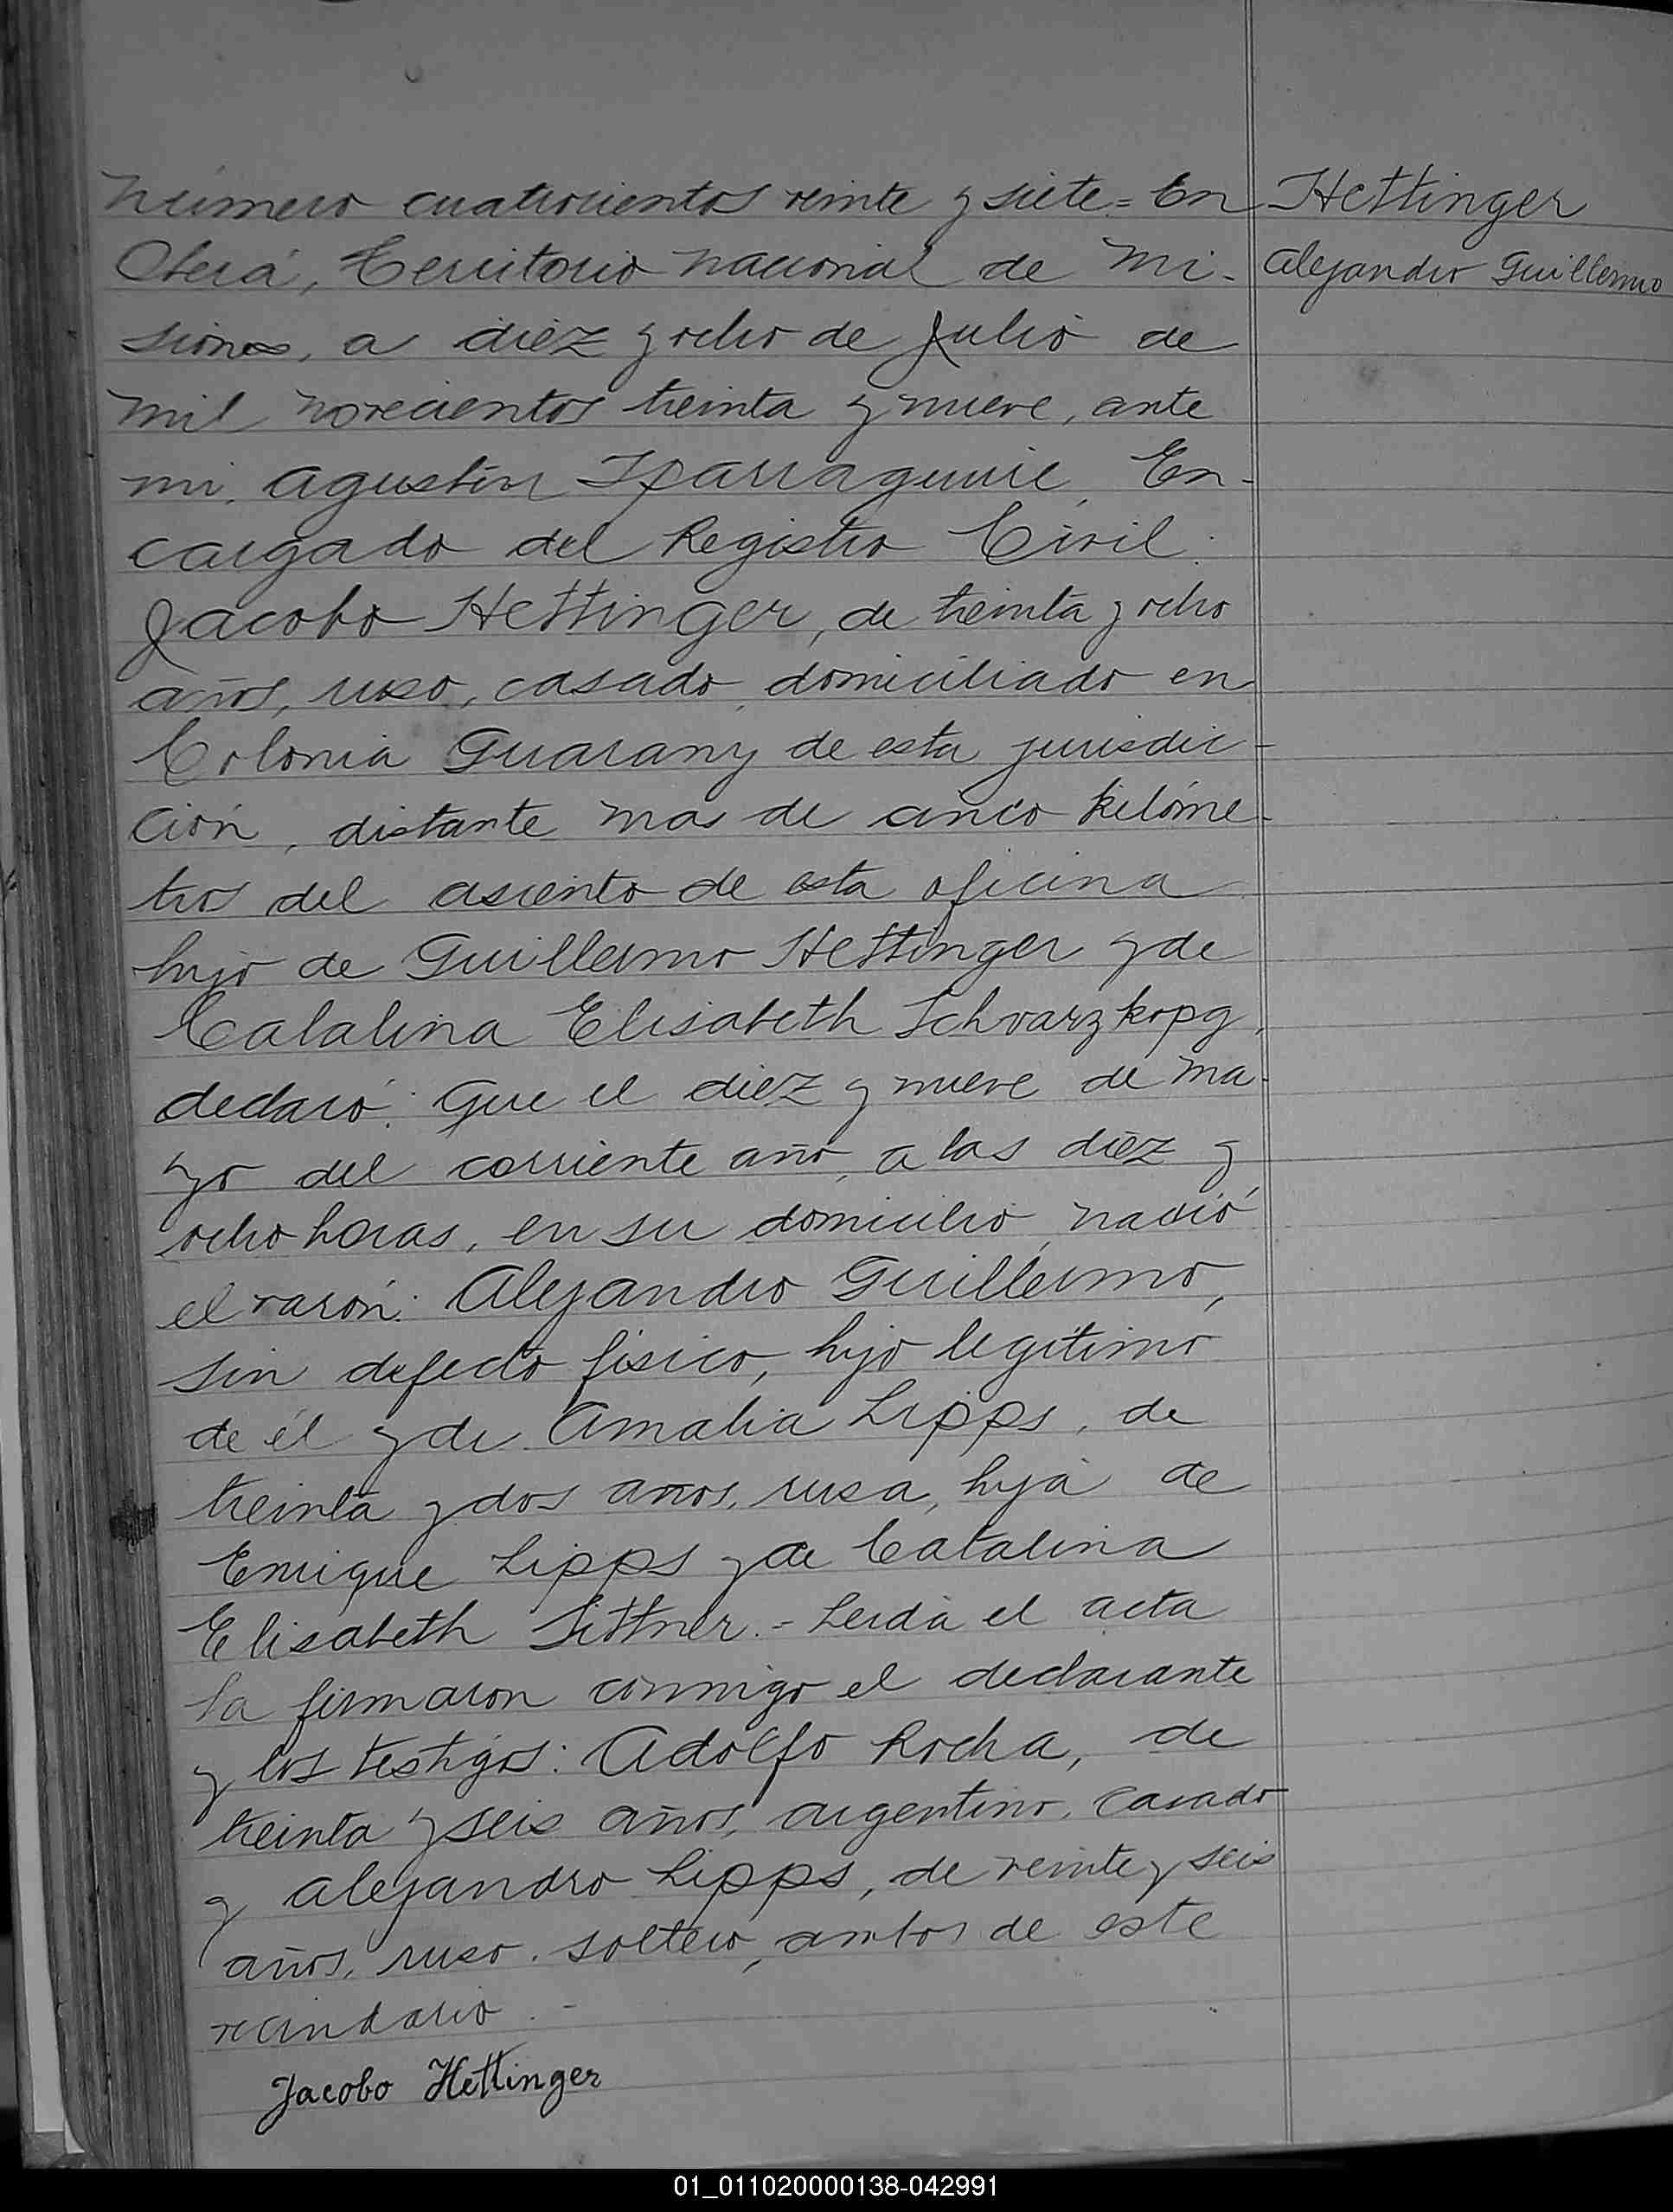 Número cuatrocientos veinte y siete = En
Oberá, Territorio Nacional de Mi-
siones, a diez y ocho de Julio de
mil novecientos treinta y nueve, ante
mi, Agustín Iparraguirre, En-
cargado del Registro Civil:
Jacobo Hettinger, de treinta y ocho
años, ruso, casado, domiciliado en
Colonia Guarany de esta jurisdic-
ción, distante mas de cinco kilóme-
tros del asiento de esta oficina
hijo de Guillermo Hettinger y de
Calalina Elisabeth Schvarzkopg,
declaró: Que el diez y nueve de Ma-
yo del corriente año, a las diez y
ocho horas, en su domicilio, nació
el varón: Alejandro Guillermo,
sin defecto físico, hijo legítimo
de él y de Amalia Lipps, de
treinta y dos años, rusa, hija de
Enrique Lipps y de Catalina
Elisabeth Sittner. - Leida el acta
la firmaron conmigo el declarante
y los testigos: Adolfo Rocha, de
treinta y seis años, argentino, casado
y Alejandro Lipps, de veinte y seis
años, ruso, soltero, ambos de este
vecindario. -
Jacobo Hettinger
Hettinger
Alejandro Guillermo
01_011020000138-042991